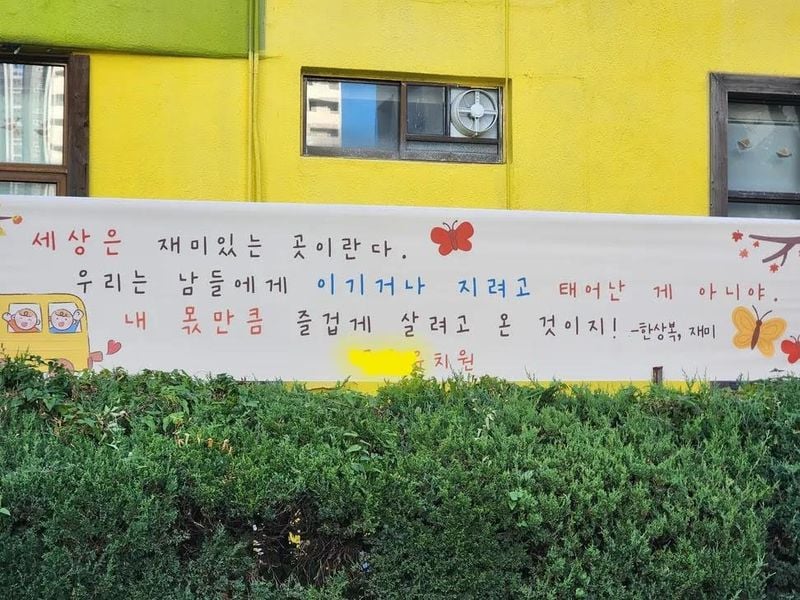 세상은 재미있는 곳이란다.
우리는 남들에게 이기거나 지려고 태어난 게 아니야.
내 몫만큼 즐겁게 살려고 온 것이지! -한상복, 재미
유치원